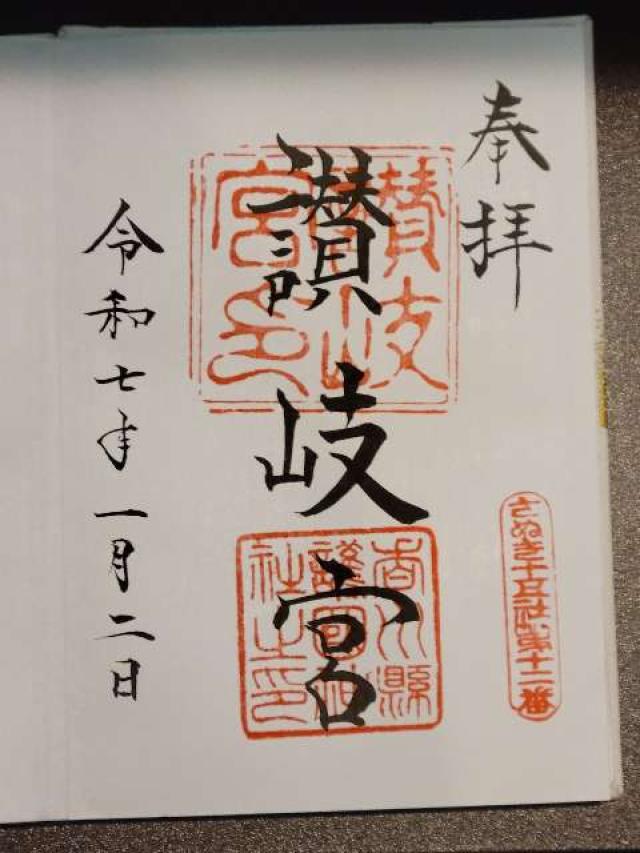 奉拝
さぬき十五社第十二番
讃岐宮
讃岐
宮印
香川縣
護國神
社之印
令和七年一月二日